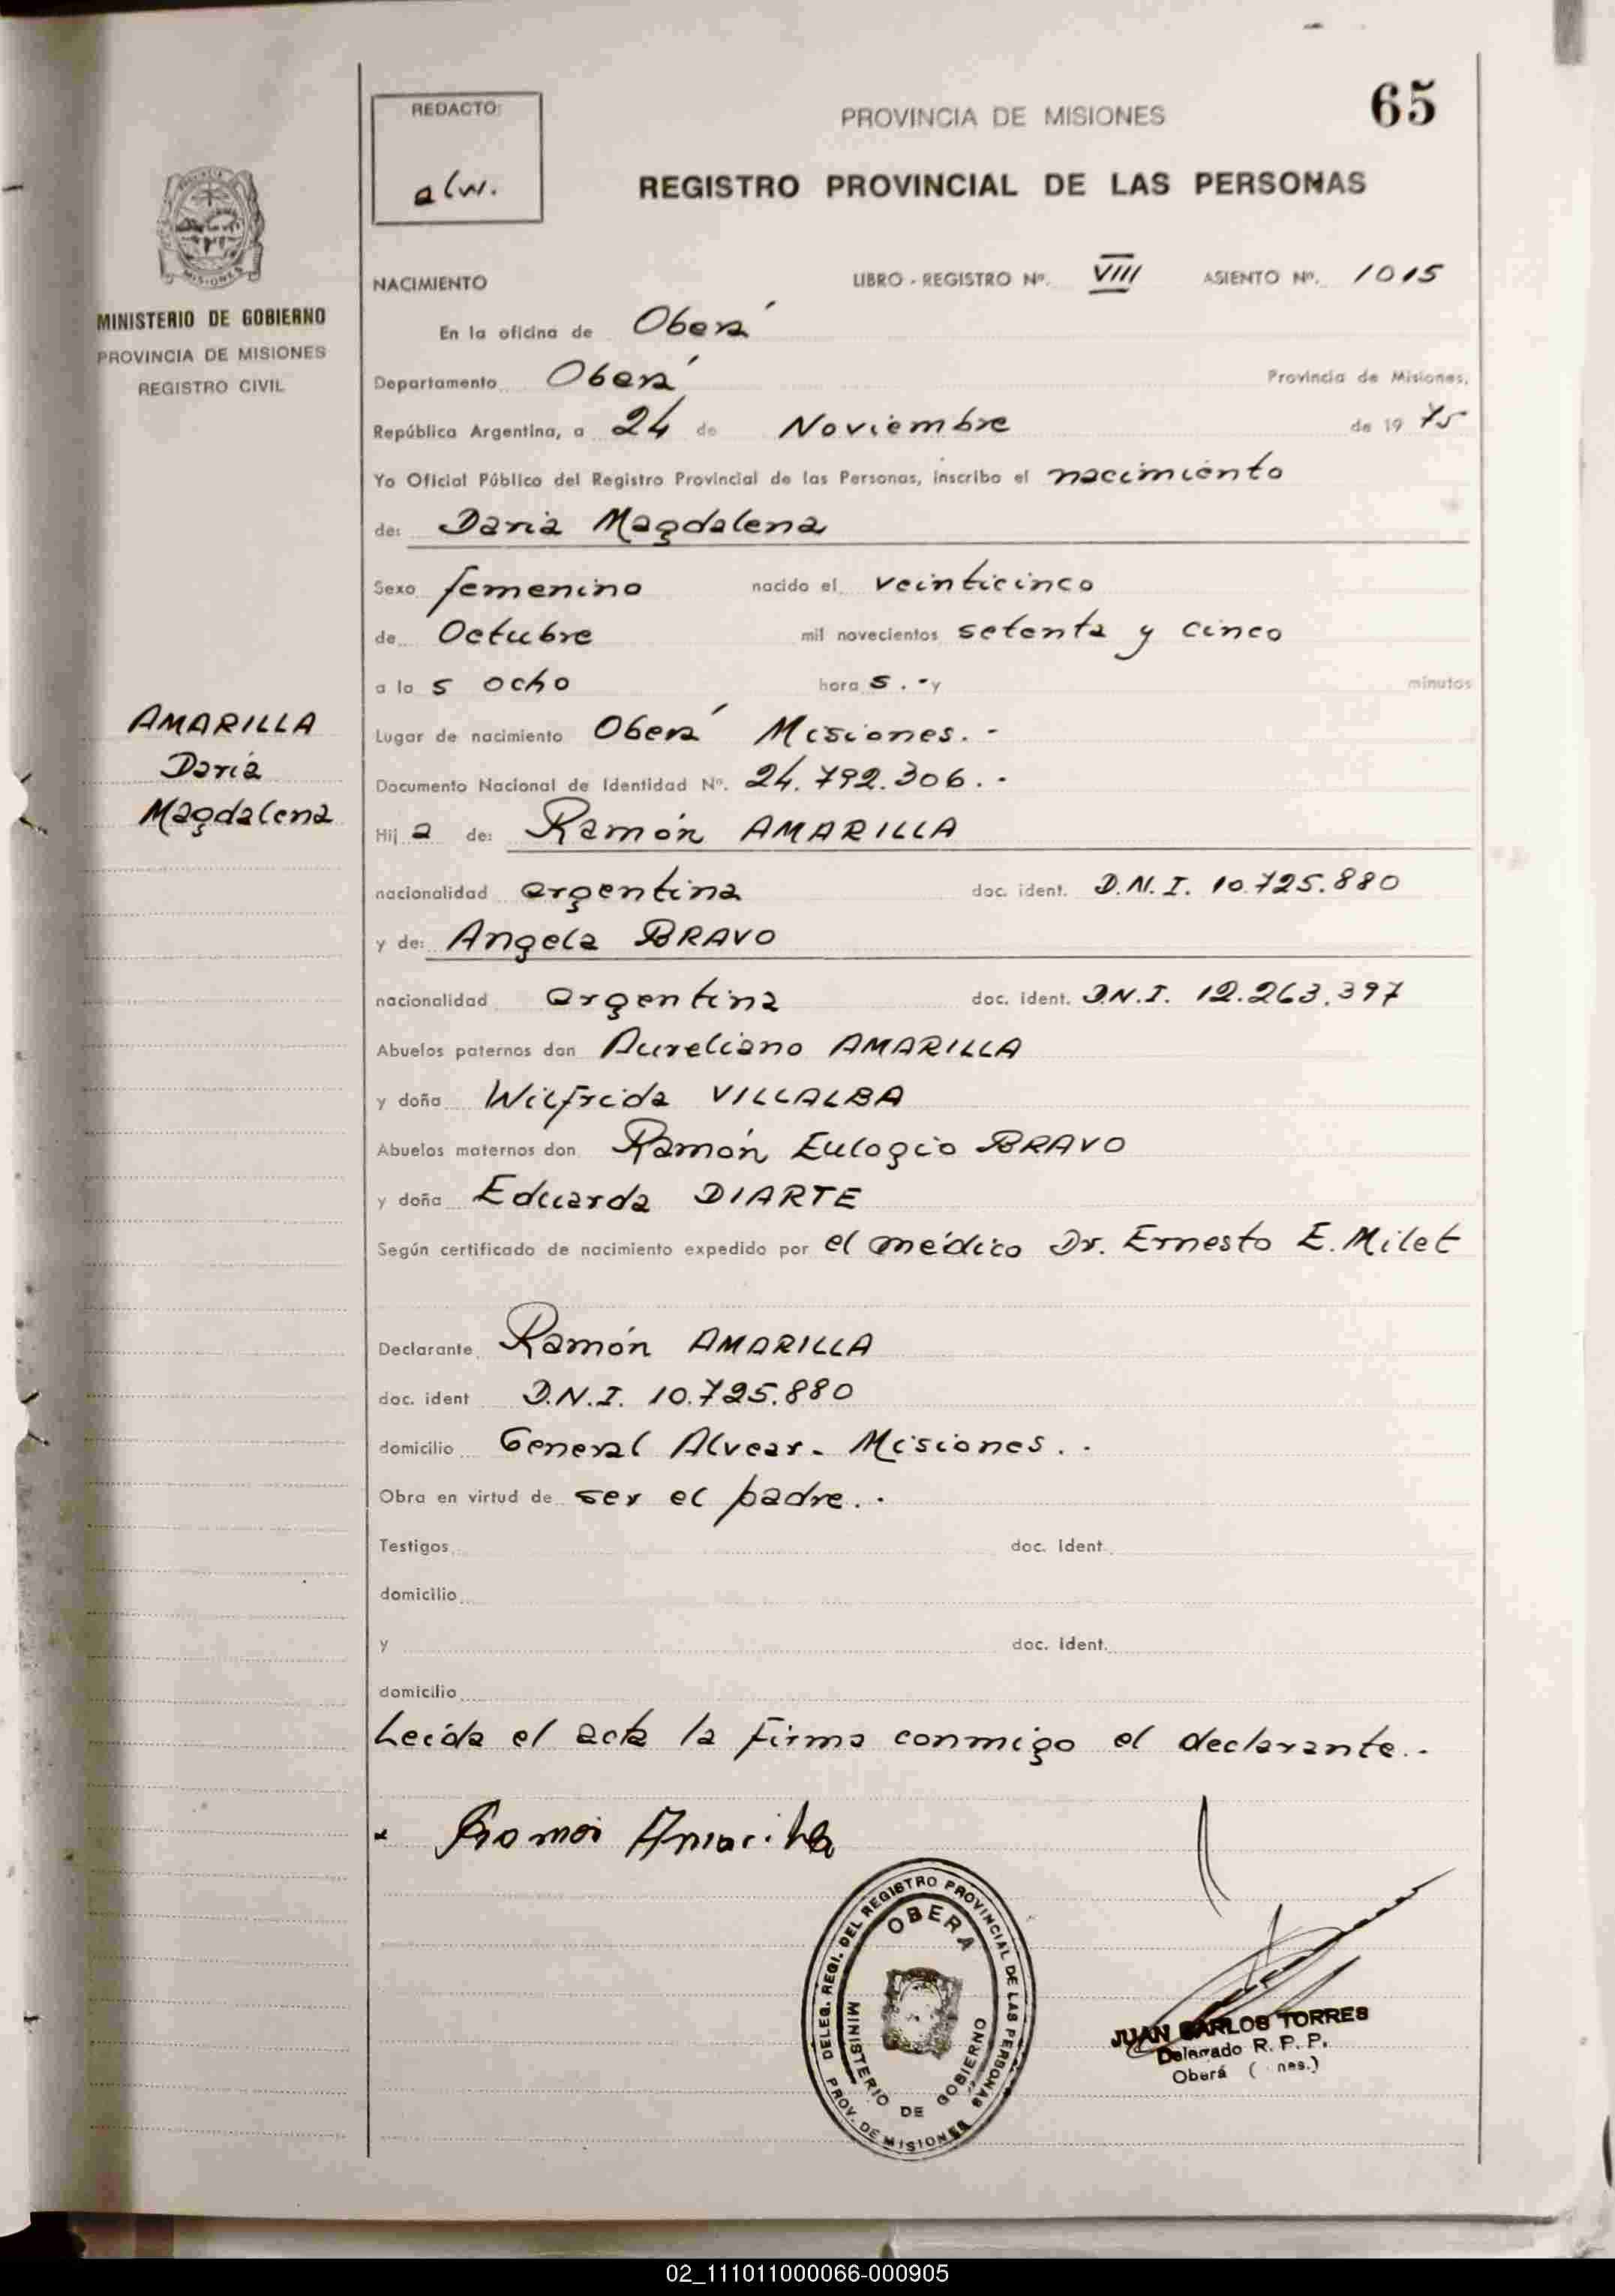 65
REDACTO:
alw.
PROVINCIA DE MISIONES
REGISTRO PROVINCIAL DE LAS PERSONAS
MINISTERIO DE GOBIERNO
PROVINCIA DE MISIONES
REGISTRO CIVIL
NACIMIENTO LIBRO - REGISTRO Nº. VIII ASIENTO Nº. 1015
En la oficina de Oberá
Departamento Oberá Provincia de Misiones,
República Argentina, a 24 de Noviembre de 19 75
Yo Oficial Público del Registro Provincial de las Personas, inscribo el nacimiento
de: Daria Magdalena
Sexo femenino nacido el veinticinco
de Octubre mil novecientos setenta y cinco
a la s ocho hora s.- y minutos
Lugar de nacimiento Oberá Misiones.-
Documento Nacional de Identidad Nº. 24.792.306.-
AMARILLA
Daria
Magdalena
Hij a de: Ramón AMARILLA
nacionalidad argentina doc. ident. D.N.I. 10.725.880
y de: Angela BRAVO
nacionalidad argentina doc. ident. D.N.I. 12.263.397
Abuelos paternos don Aureliano AMARILLA
y doña Wilfrida VILLALBA
Abuelos maternos don Ramón Eulogio BRAVO
y doña Eduarda DIARTE
Según certificado de nacimiento expedido por el médico Dr. Ernesto E. Milet
Declarante Ramón AMARILLA
doc. ident D.N.I. 10.725.880
domicilio General Alvear - Misiones.-
Obra en virtud de ser el padre.-
Testigos doc. ident.
domicilio
y doc. ident.
domicilio
Leída el acta la firma conmigo el declarante.-
DELEG. REGI. DEL REGISTRO PROVINCIAL DE LAS PERSONAS
OBERA
MINISTERIO DE GOBIERNO
PROV. DE MISIONES
JUAN CARLOS TORRES
Delegado R. P. P.
Oberá ( nes.)
02_111011000066-000905